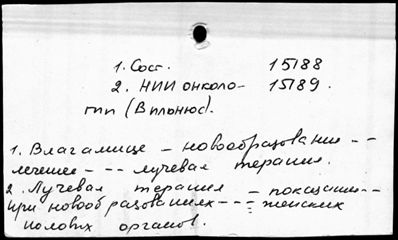 1. Сост. 15188
2. НИИ онколо- 15189.
гии (Вильнюс).
1. Влагалище - новообразование --
лечение - -- лучевая терапия.
2. Лучевая терапия - показания --
при новообразованиях --- женских
половых органов.